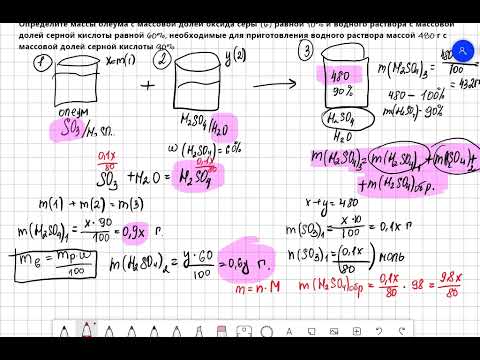 Определите массы олеума с массовой долей оксида серы (6) равной 10% и водного раствора с массовой
долей серной кислоты равной 60%, необходимые для приготовления водного раствора массой 480 г с
массовой долей серной кислоты 90%
1 x=m(1) 2 y(2) 3
480
90%
m(H₂SO₄)₃ = 480·
100
=432
олеум + →
480 - 100%
m(H₂SO₄) - 90%
SO₃/H₂SO₄ H₂SO₄/H₂O H₂SO₄
H₂O
ω(H₂SO₄)=60%
0,1x
80
0,1x
80
SO₃ + H₂O = H₂SO₄
m(H₂SO₄)₃ = m(H₂SO₄)₁ + m(H₂SO₄)₂
+ m(H₂SO₄)обр.
m(1) + m(2) = m(3)
x+y = 480
m(H₂SO₄)₁ = x·90/100 = 0,9x г.
m(SO₃)₁ = x·10/100 = 0,1x г
mв = mр·w/100
m(H₂SO₄)₂ = y·60/100 = 0,6y г.
n(SO₃)₁ = (0,1x/80) моль
m = n·M
m(H₂SO₄)обр = 0,1x/80 · 98 = 9,8x/80